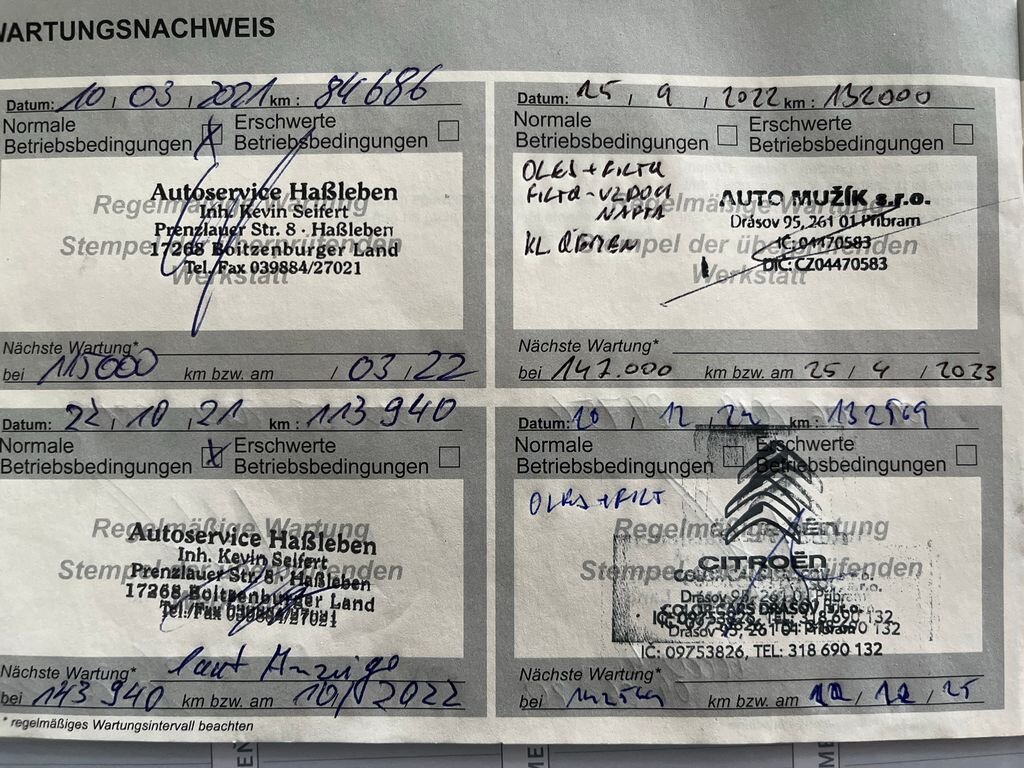 WARTUNGSNACHWEIS
Datum: 10 / 03 / 2021 km : 84686
Normale
Betriebsbedingungen
Erschwerte
Betriebsbedingungen
Regelmäßige Wartung
Stempel der überprüfenden
Werkstatt
Autoservice Haßleben
Inh. Kevin Seifert
Prenzlauer Str. 8 · Haßleben
17268 Boitzenburger Land
Tel./Fax 039884/27021
Nächste Wartung*
bei 115000 km bzw. am / 03 / 22
Datum: 25 / 9 / 2022 km : 132000
Normale
Betriebsbedingungen
Erschwerte
Betriebsbedingungen
OLEJ + FILTR
FILTR - VZDUCH
NAFTA
Regelmäßige Wartung
Stempel der überprüfenden
Werkstatt
AUTO MUŽÍK s.r.o.
Drásov 95, 261 01 Příbram
IČ: 04470583
DIČ: CZ04470583
Nächste Wartung*
bei 147.000 km bzw. am 25 / 9 / 2023
Datum: 22 / 10 / 21 km : 113 940
Normale
Betriebsbedingungen
Erschwerte
Betriebsbedingungen
Regelmäßige Wartung
Stempel der überprüfenden
Autoservice Haßleben
Inh. Kevin Seifert
Prenzlauer Str. 8 · Haßleben
17268 Boitzenburger Land
Tel./Fax 039884/27021
Nächste Wartung* laut Anzeige
bei 143 940 km bzw. am 10 / 2022
* regelmäßiges Wartungsintervall beachten
Datum: / 12 / km : 132569
Normale
Betriebsbedingungen
Erschwerte
Betriebsbedingungen
OLEJ + FILT
Regelmäßige Wartung
Stempel der überprüfenden
CITROËN
COLOR CARS DRÁSOV s.r.o.
Drásov 95, 261 01 Příbram
IČ: 09753826, TEL: 318 690 132
Nächste Wartung*
bei km bzw. am / / 25